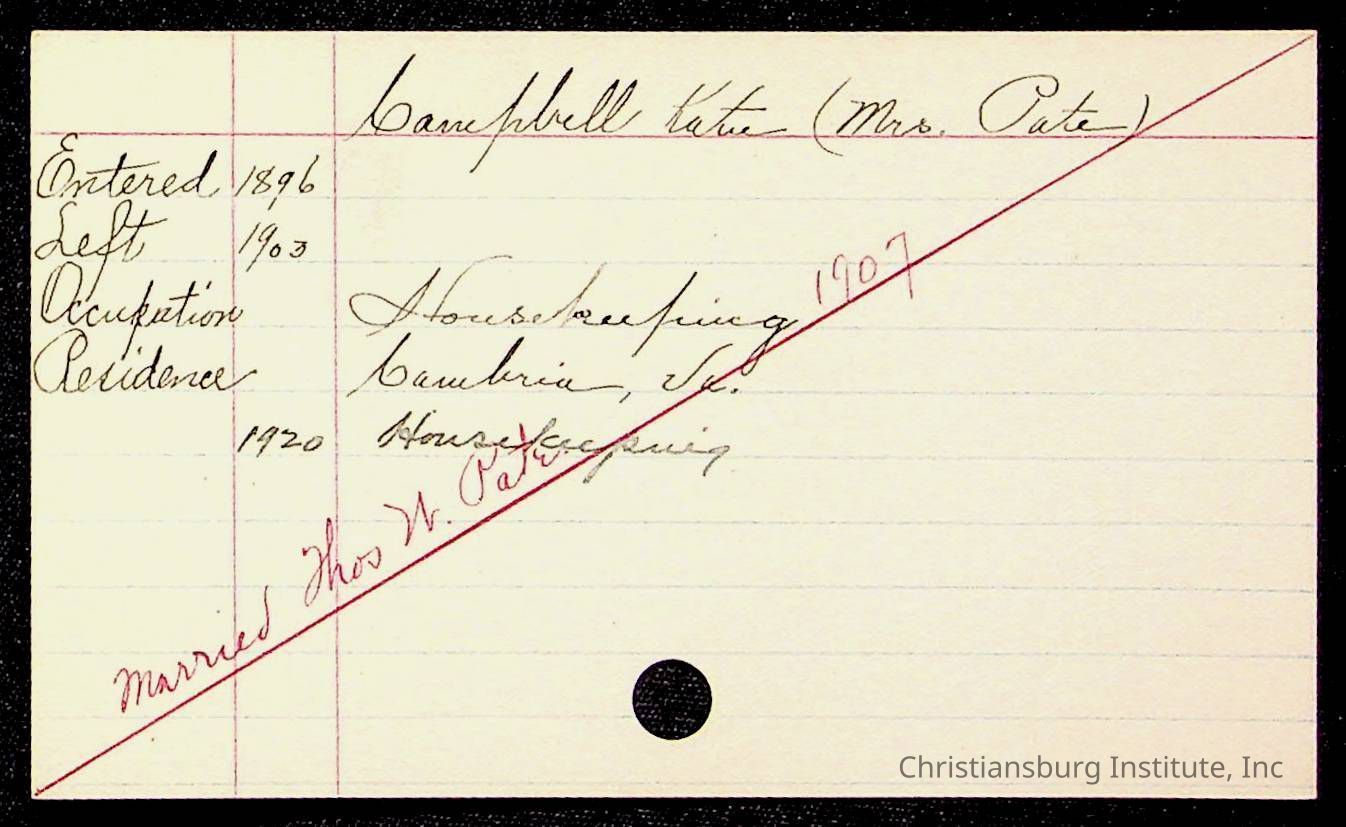 Campbell Katie (Mrs. Pate)
Entered 1896
Left 1903
Occupation Housekeeping
Residence Cambria, Va.
1920 Housekeeping
Married Thos W. Pate 1907
Christiansburg Institute, Inc